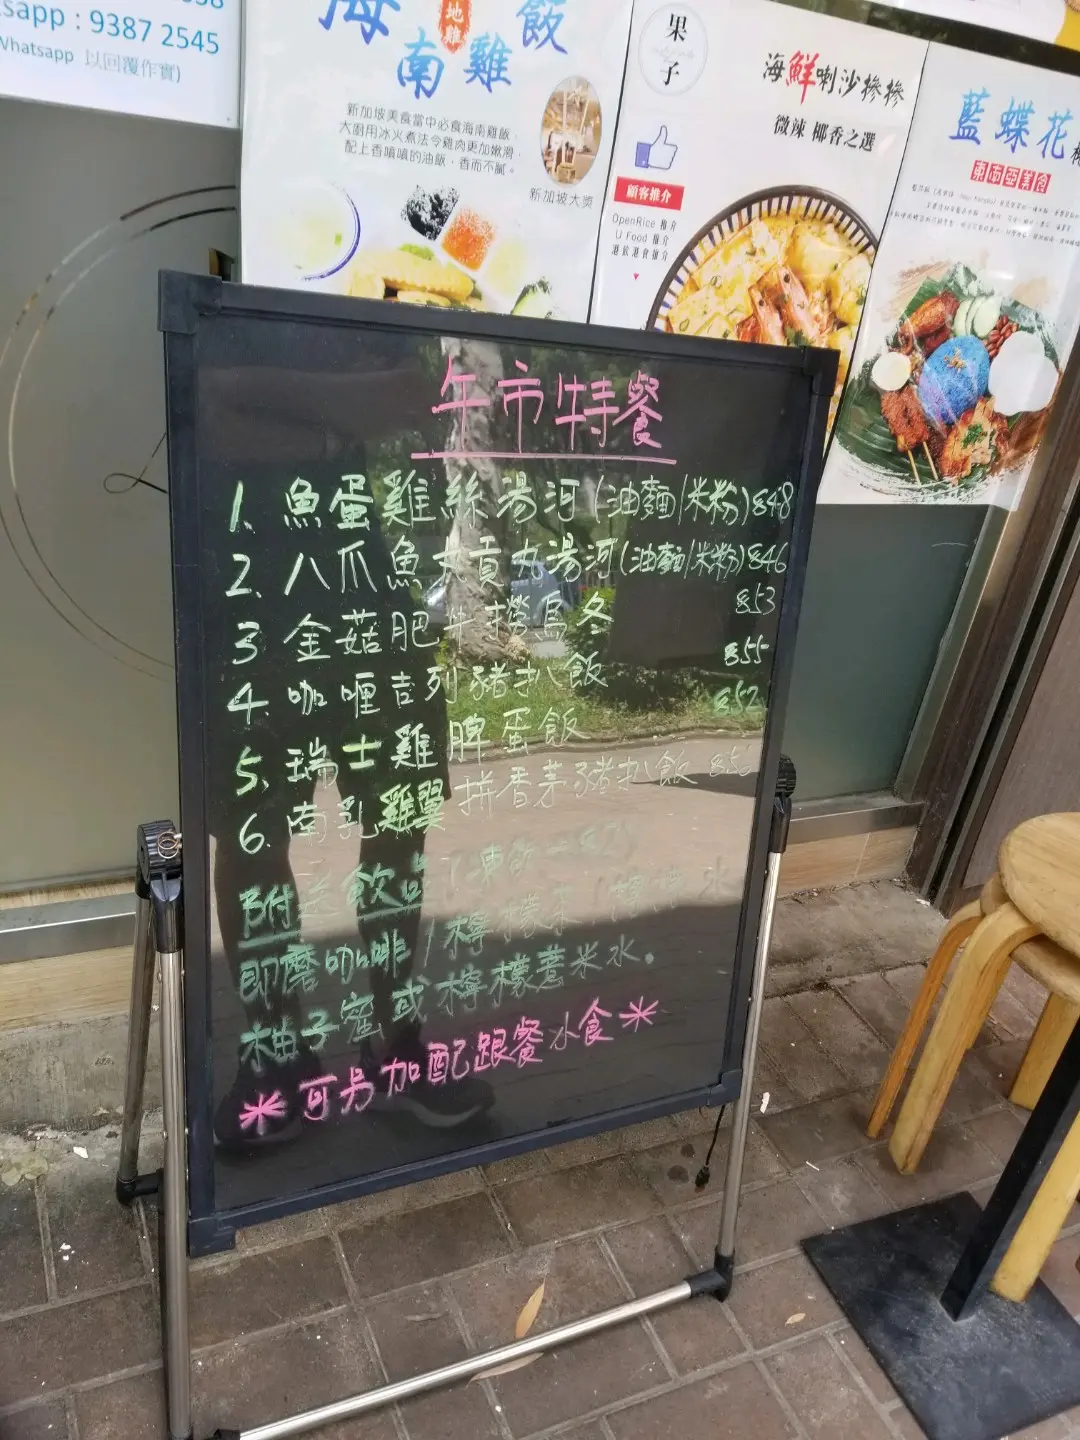 9387 2545
Whatsapp 以回覆作實)
海南雞飯
地
雞
新加坡美食當中必食海南雞飯,
大廚用冰火煮法令雞肉更加嫩滑,
配上香噴噴的油飯,香而不膩。
新加坡大獎
果
子
海鮮喇沙摻摻
微辣 椰香之選
顧客推介
OpenRice 推介
U Food 推介
港飲港食推介
藍蝶花
東南亞美食
午市特餐
1. 魚蛋雞絲湯河(油麵/米粉)$48
2. 八爪魚丸貢丸湯河(油麵/米粉)$46
3 金菇肥牛撈烏冬 $53
4. 咖喱吉列豬扒飯 $55
5. 瑞士雞脾蛋飯 $52
6. 南乳雞翼拼香茅豬扒飯
附送飲品(凍飲
即磨咖啡/檸檬茶/檸檬水
柚子蜜或檸檬薏米水。
*可另加配跟餐小食*